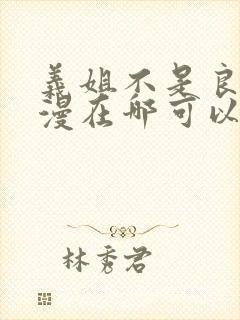 義姐不是良
漫在哪可以
林秀君